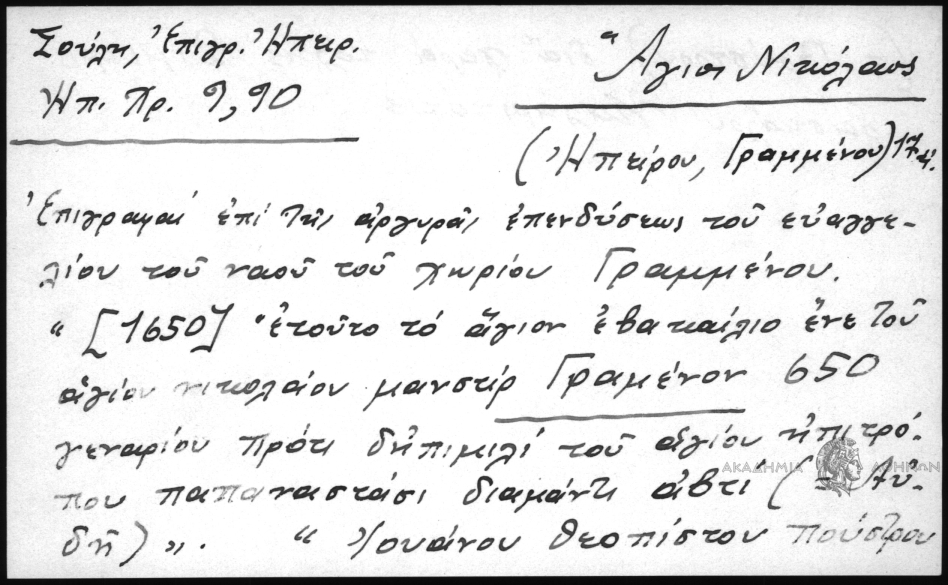 Σούλη, Ἐπιγρ. Ἠπειρ.
Ἠπ. Χρ. 9,90
Ἅγιος Νικόλαος
(Ἠπείρου, Γραμμένου) 17
Ἐπιγραφαί ἐπί τῆς ἀργυρᾶς ἐπενδύσεως τοῦ εὐαγγε-
λίου τοῦ ναοῦ τοῦ χωρίου Γραμμένου.
" [1650] ἐτοῦτο τό ἅγιον ἐβατκαίλιο ἔνε τοῦ
ἁγίου νικολαίου μανστίρ Γραμένον 650
γεναρίου πρότι δηπιμιλί τοῦ αἁγίου ἠπιτρό-
που παπαναστάσι διαμάντι ἀβτί (= Αὐ-
δῆ) ". " Ἰουάνου θεοπίστου πούστρου
ΑΚΑΔΗΜΙΑ ΑΘΗΝΩΝ